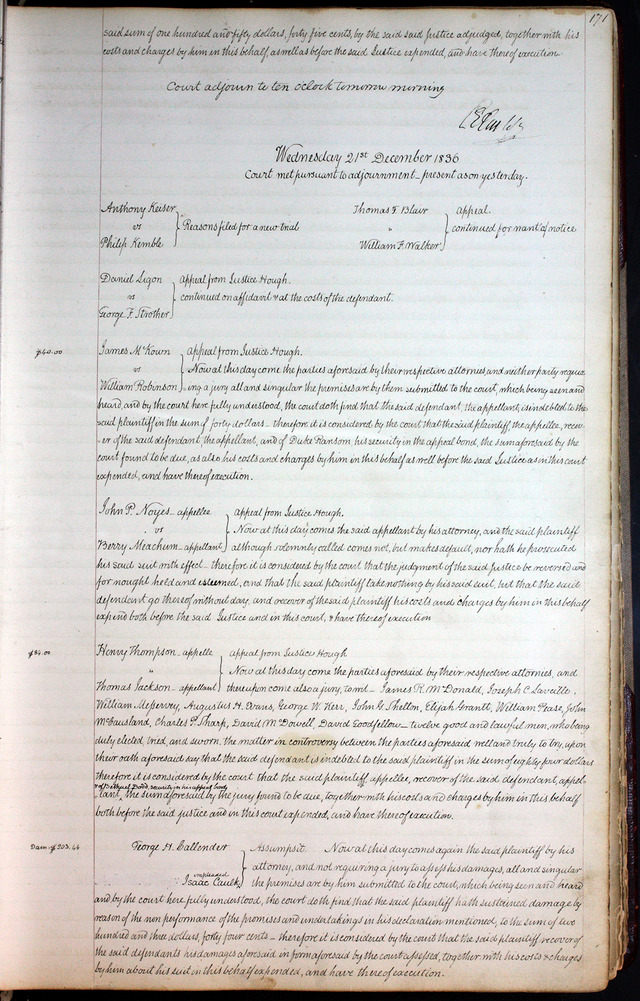 171
said sum of one hundred and fifty dollars, forty five cents, by the said said Justice adjudged, together with his
costs and charges by him in this behalf, as well as before the said Justice expended, and have thereof execution.
Court adjourn to ten oclock tomorrow morning
Wednesday 21st December 1836
Court met pursuant to adjournment - present as on yesterday.
Anthony Keiser
vs
Philip Kemble
Reasons filed for a new trial
Thomas T Blair
"
William F. Walker
appeal.
continued for want of notice
Daniel Ligon
vs
George F. Strother
appeal from Justice Hough.
continued on affidavit & at the costs of the defendant.
$40.00
James McKown
vs
William Robinson
appeal from Justice Hough.
Now at this day come the parties aforesaid by their respective attornies, and neither party requir
-ing a jury all and singular the premises are by them submitted to the court, which being seen and
heard, and by the court here fully understood, the court doth find that the said defendant, the appellant, is indebted to the
said plaintiff in the sum of forty dollars - therefore it is considered by the court that the said plaintiff the appellee, recov
-er of the said defendant, the appellant, and of Duke Ransom his security in the appeal bond, the sum aforesaid by the
court found to be due, as also his costs and charges by him in this behalf as well before the said Justice as in this court
expended, and have thereof execution.
John P. Noyes - appellee
vs
Berry Meachum - appellant
appeal from Justice Hough.
Now at this day comes the said appellant by his attorney, and the said plaintiff
although solemnly called comes not, but makes default, nor hath he prosecuted
his said suit with effect - therefore it is considered by the court that the judgment of the said Justice be reversed and
for nought held and esteemed, and that the said plaintiff take nothing by his said suit, but that the said
defendant go thereof without day, and recover of the said plaintiff his costs and charges by him in this behalf
expend both before the said Justice and in this court, & have thereof execution
$84.00
Henry Thompson - appelle
"
Thomas Jackson - appellant
appeal from Justice Hough
Now at this day come the parties aforesaid by their respective attornies, and
thereupon come also a jury, to wit - James R. McDonald, Joseph C. Laveille,
William Meservey, Augustus H. Evans, George W. Kerr, John G. Shelton, Elijah Grantt, William Pease, John
McCausland, Charles P. Tharp, David McDowell, David Goodfellow - twelve good and lawful men, who being
duly elected, tried, and sworn, the matter in controversy between the parties aforesaid well and truly to try, upon
their oath aforesaid say that the said defendant is indebted to the said plaintiff in the sum of eighty four dollars
therefore it is considered by the court that the said plaintiff appellee, recover of the said defendant, appel-
& of Dodd, security in his appeal bond
-lant, the sum aforesaid by the jury found to be due, together with his costs and charges by him in this behalf
both before the said justice and in this court expended, and have thereof execution.
Dam: $203.44
George H. Callender
impleaded
Isaac Caulk
Assumpsit. Now at this day comes again the said plaintiff by his
attorney, and not requiring a jury to assess his damages, all and singular
the premises are by him submitted to the court, which being seen and heard
and by the court here fully understood, the court doth find that the said plaintiff hath sustained damage by
reason of the non performance of the promises and undertakings in his declaration mentioned, to the sum of two
hundred and three dollars, forty four cents - therefore it is considered by the court that the said plaintiff recover of
the said defendants his damages aforesaid in form aforesaid by the court assessed, together with his costs & charges
by him about his suit in this behalf expended, and have thereof execution.